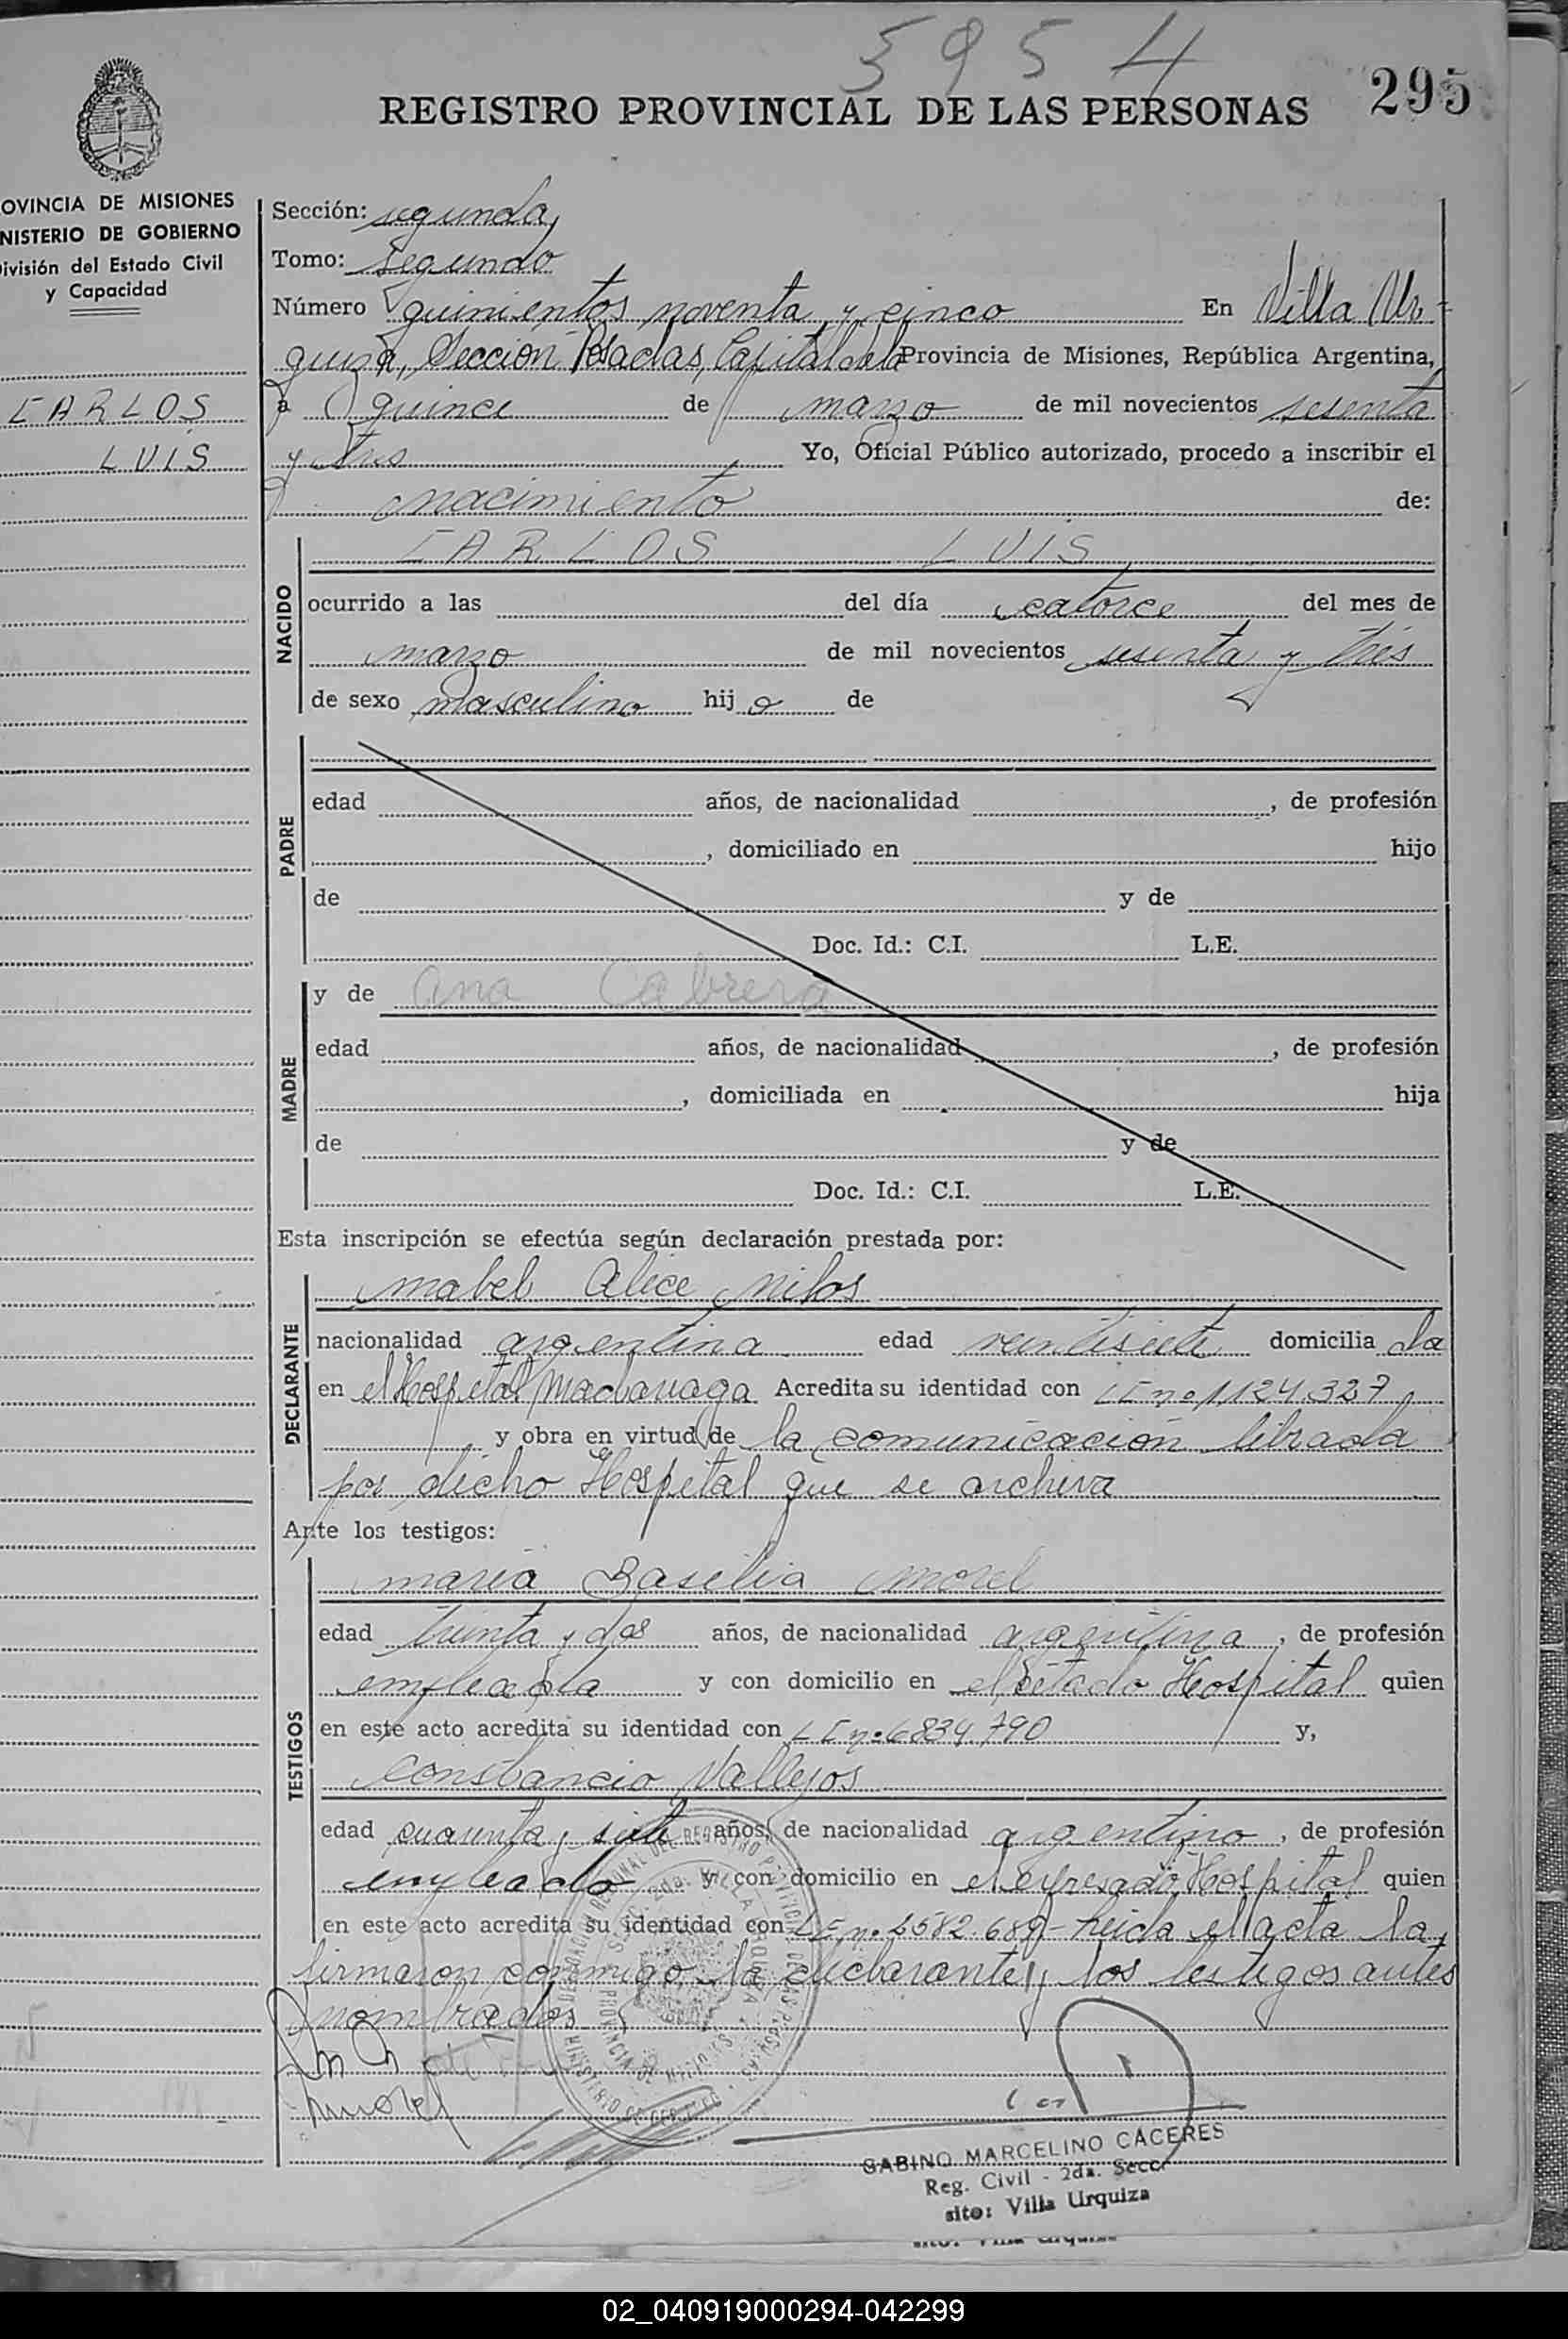 5954
REGISTRO PROVINCIAL DE LAS PERSONAS 295
OVINCIA DE MISIONES
NISTERIO DE GOBIERNO
ivisión del Estado Civil
y Capacidad
CARLOS
LUIS
Sección: segunda
Tomo: segundo
Número quinientos noventa y cinco En Villa Ur-
quiza, Sección Posadas, Capital de la Provincia de Misiones, República Argentina,
a quince de marzo de mil novecientos sesenta
y tres Yo, Oficial Público autorizado, procedo a inscribir el
nacimiento de:
NACIDO
CARLOS LUIS
ocurrido a las del día catorce del mes de
marzo de mil novecientos sesenta y tres
de sexo masculino hijo de
PADRE
edad años, de nacionalidad , de profesión
, domiciliado en hijo
de y de
Doc. Id.: C.I. L.E.
MADRE
y de Ana Cabrera
edad años, de nacionalidad , de profesión
, domiciliada en hija
de y de
Doc. Id.: C.I. L.E.
Esta inscripción se efectúa según declaración prestada por:
DECLARANTE
Mabel Alice
nacionalidad argentina edad veintisiete domiciliada
en el Hospital Madariaga Acredita su identidad con LC nº 1124.327
y obra en virtud de la comunicación librada
por dicho Hospital que se archiva
Ante los testigos:
TESTIGOS
María Basilia Morel
edad treinta y dos años, de nacionalidad argentina, de profesión
empleada y con domicilio en el citado Hospital quien
en este acto acredita su identidad con LC nº 6834.790 y,
Constancio Vallejos
edad cuarenta y siete años, de nacionalidad argentino, de profesión
empleado y con domicilio en el expresado Hospital quien
en este acto acredita su identidad con LE nº 2582.689- Leida el acta la
firmaron conmigo la declarante y los testigos antes
nombrados
Morel
GABINO MARCELINO CACERES
Reg. Civil - 2da. Secc.
sito: Villa Urquiza
02_040919000294-042299